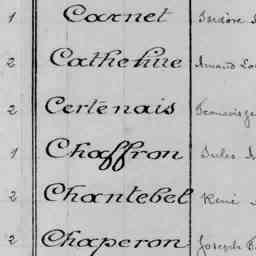 1 Carnet Isidore
2 Catheline Amand
2 Certénais
1 Chaffron Jules
2 Chantebel René
2 Chaperon Joseph